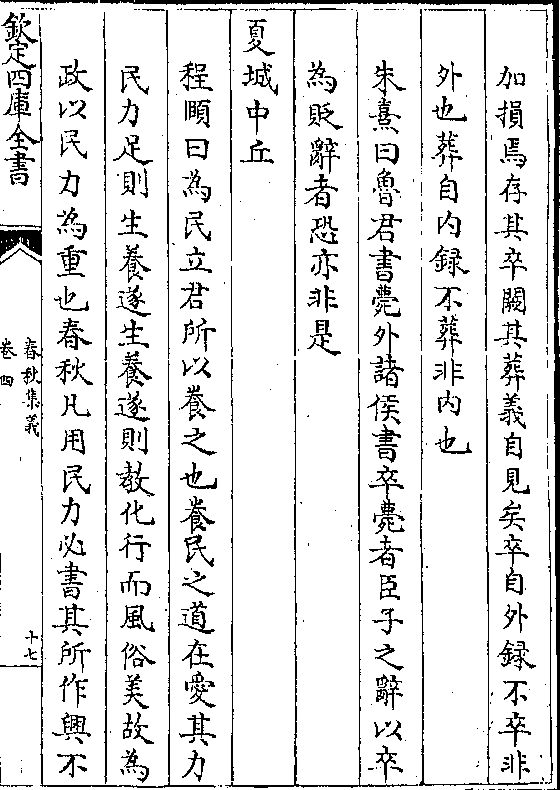 加損焉存其卒闕其葬義自見矣卒自外録不卒非
外也葬自内録不葬非内也
朱熹曰魯君書薨外諸侯書卒薨者臣子之辭以卒
為貶辭者恐亦非是
夏城中丘
程頤曰為民立君所以養之也養民之道在愛其力
民力足則生養遂生養遂則教化行而風俗美故為
政以民力為重也春秋凡用民力必書其所作興不
欽定四庫全書
春秋集義
卷四
十七